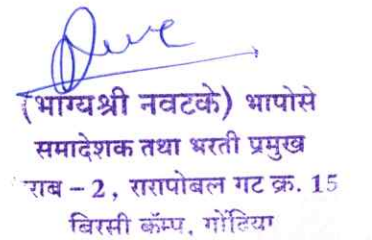 (भाग्यश्री नवटके) भापोसे
समादेशक तथा भरती प्रमुख
राब – 2, रारापोबल गट क्र. 15
बिरसी कॅम्प, गोंदिया